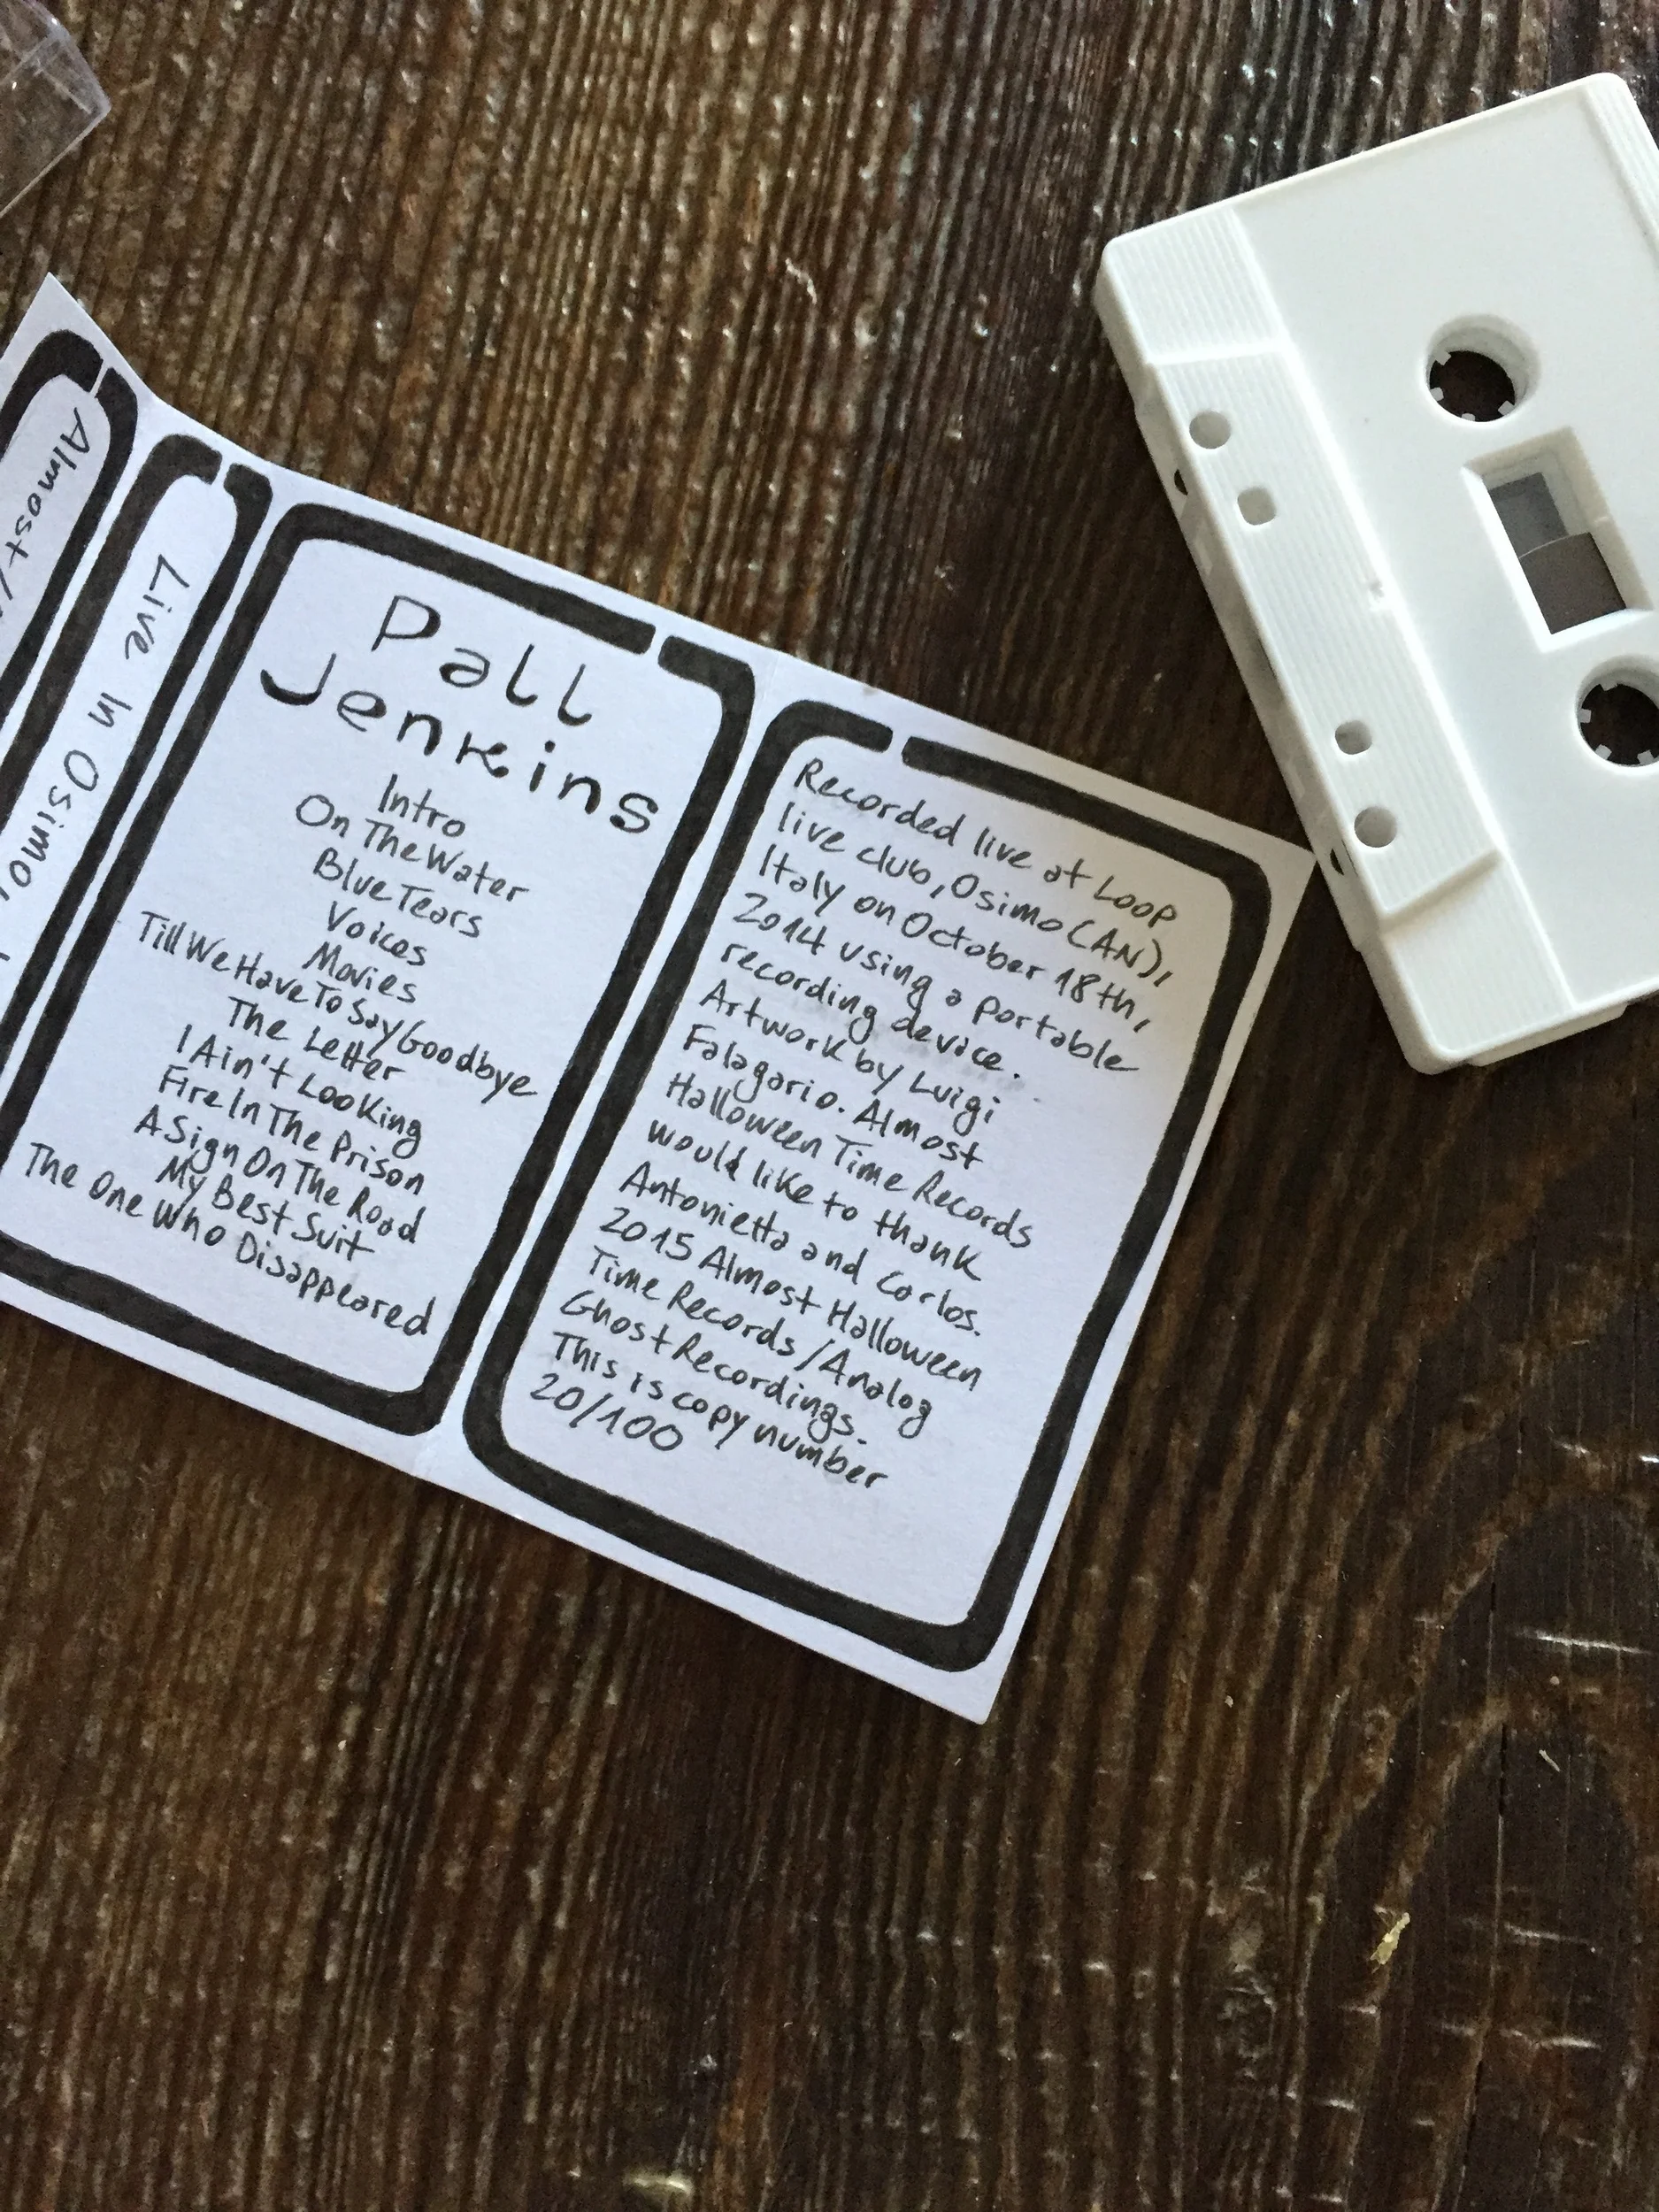 Almost
Live In Osimo,
Pall
Jenkins
Intro
On The Water
Blue Tears
Voices
Movies
Till We Have To Say Goodbye
The Letter
I Ain't Looking
Fire In The Prison
A Sign On The Road
My Best Suit
The One Who Disappeared
Recorded live at Loop
live club, Osimo (AN),
Italy on October 18th,
2014 using a portable
recording device.
Artwork by Luigi
Falagario. Almost
Halloween Time Records
would like to thank
Antonietta and Carlos.
2015 Almost Halloween
Time Records / Analog
Ghost Recordings.
This is copy number
20/100